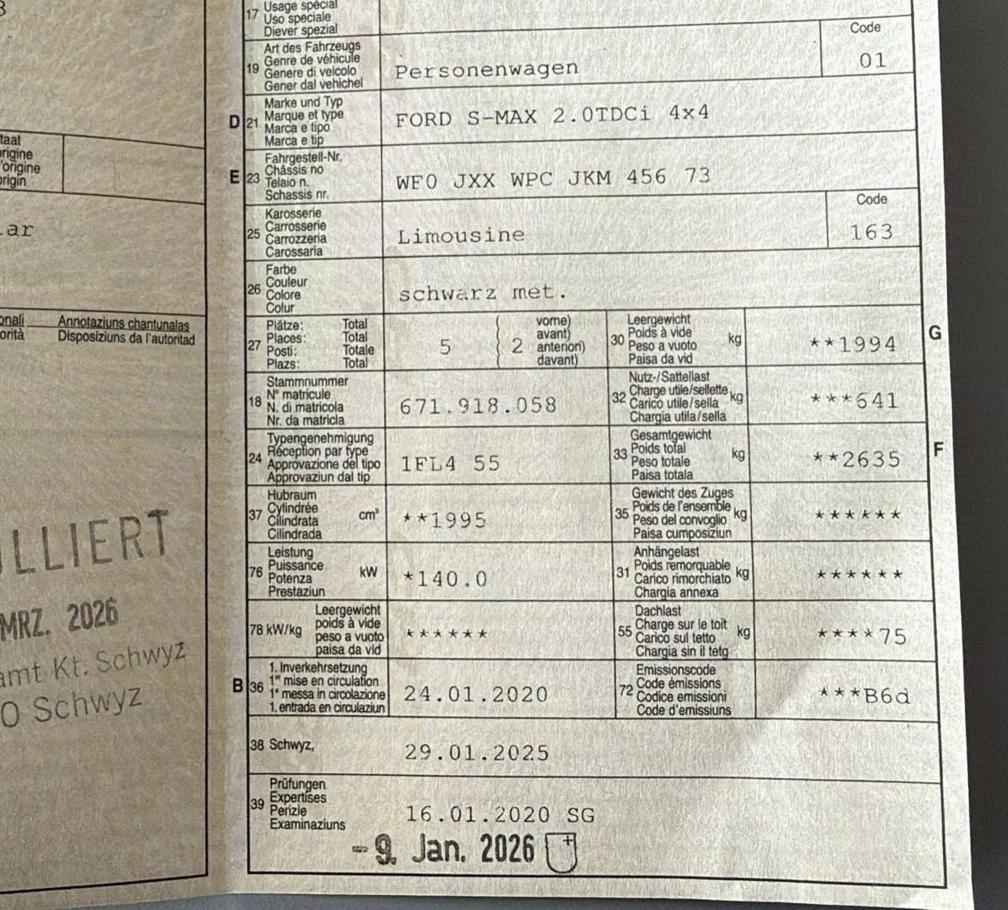 taat
rigine
'origine
rigin
ar
onali Annotaziuns chantunalas
orità Disposiziuns da l'autoritad
LLIERT
MRZ. 2026
amt Kt. Schwyz
0 Schwyz
17 Usage spécial
Uso speciale
Diever spezial
19 Art des Fahrzeugs
Genre de véhicule
Genere di veicolo
Gener dal vehichel
Personenwagen
Code
01
D 21 Marke und Typ
Marque et type
Marca e tipo
Marca e tip
FORD S-MAX 2.0TDCi 4x4
E 23 Fahrgestell-Nr.
Châssis no
Telaio n.
Schassis nr.
WF0 JXX WPC JKM 456 73
25 Karosserie
Carrosserie
Carrozzeria
Carossaria
Limousine
Code
163
26 Farbe
Couleur
Colore
Colur
schwarz met.
27 Plätze: Total
Places: Total
Posti: Totale
Plazs: Total
5 ( 2 vorne)
avant)
anteriori)
davant)
30 Leergewicht
Poids à vide
Peso a vuoto
Paisa da vid
kg **1994 G
18 Stammnummer
N° matricule
N. di matricola
Nr. da matricla
671.918.058
32 Nutz-/Sattellast
Charge utile/sellette
Carico utile/sella
Chargia utila/sella
kg ***641
24 Typengenehmigung
Réception par type
Approvazione del tipo
Approvaziun dal tip
1FL4 55
33 Gesamtgewicht
Poids total
Peso totale
Paisa totala
kg **2635 F
37 Hubraum
Cylindrée
Cilindrata
Cilindrada
cm³ **1995
35 Gewicht des Zuges
Poids de l'ensemble
Peso del convoglio
Paisa cumposiziun
kg ******
76 Leistung
Puissance
Potenza
Prestaziun
kW *140.0
31 Anhängelast
Poids remorquable
Carico rimorchiato
Chargia annexa
kg ******
78 kW/kg Leergewicht
poids à vide
peso a vuoto
paisa da vid
******
55 Dachlast
Charge sur le toit
Carico sul tetto
Chargia sin il tetg
kg ****75
B 36 1. Inverkehrsetzung
1re mise en circulation
1a messa in circolazione
1. entrada en circulaziun
24.01.2020
72 Emissionscode
Code émissions
Codice emissioni
Code d'emissiuns
***B6d
38 Schwyz, 29.01.2025
39 Prüfungen
Expertises
Perizie
Examinaziuns
16.01.2020 SG
- 9. Jan. 2026